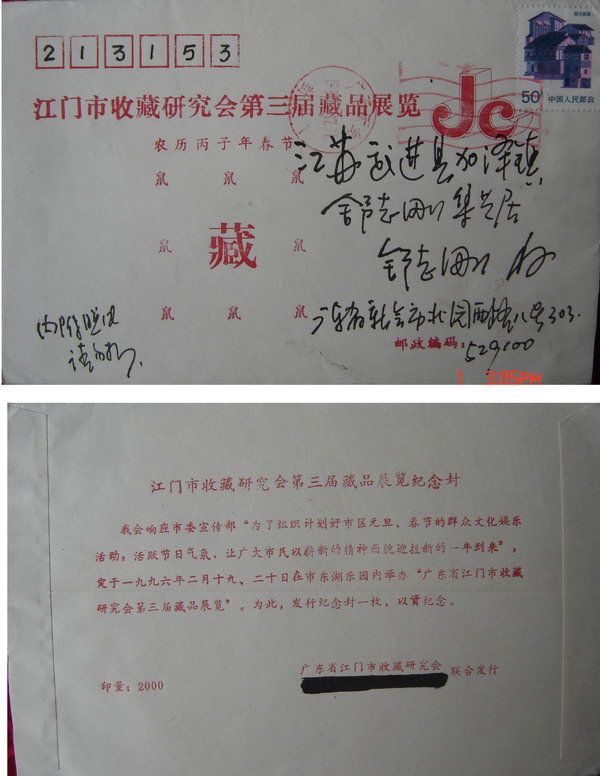 213153
江门市收藏研究会第三届藏品展览
农历丙子年春节
50
中国人民邮政
JC
江苏武进县加泽镇
舒志刚集艺居
舒志刚
鼠 鼠 鼠
鼠 藏 鼠
鼠 鼠 鼠
广东省新会市北园西路八号303.
邮政编码:
529100
3:05PM
江门市收藏研究会第三届藏品展览纪念封
我会响应市委宣传部“为了组织计划好市区元旦、春节的群众文化娱乐
活动,活跃节日气氛,让广大市民以崭新的精神面貌迎接新的一年到来”,
定于一九九六年二月十九、二十日在市东湖乐园内举办“广东省江门市收藏
研究会第三届藏品展览”。为此,发行纪念封一枚,以资纪念。
广东省江门市收藏研究会
联合发行
印量:2000